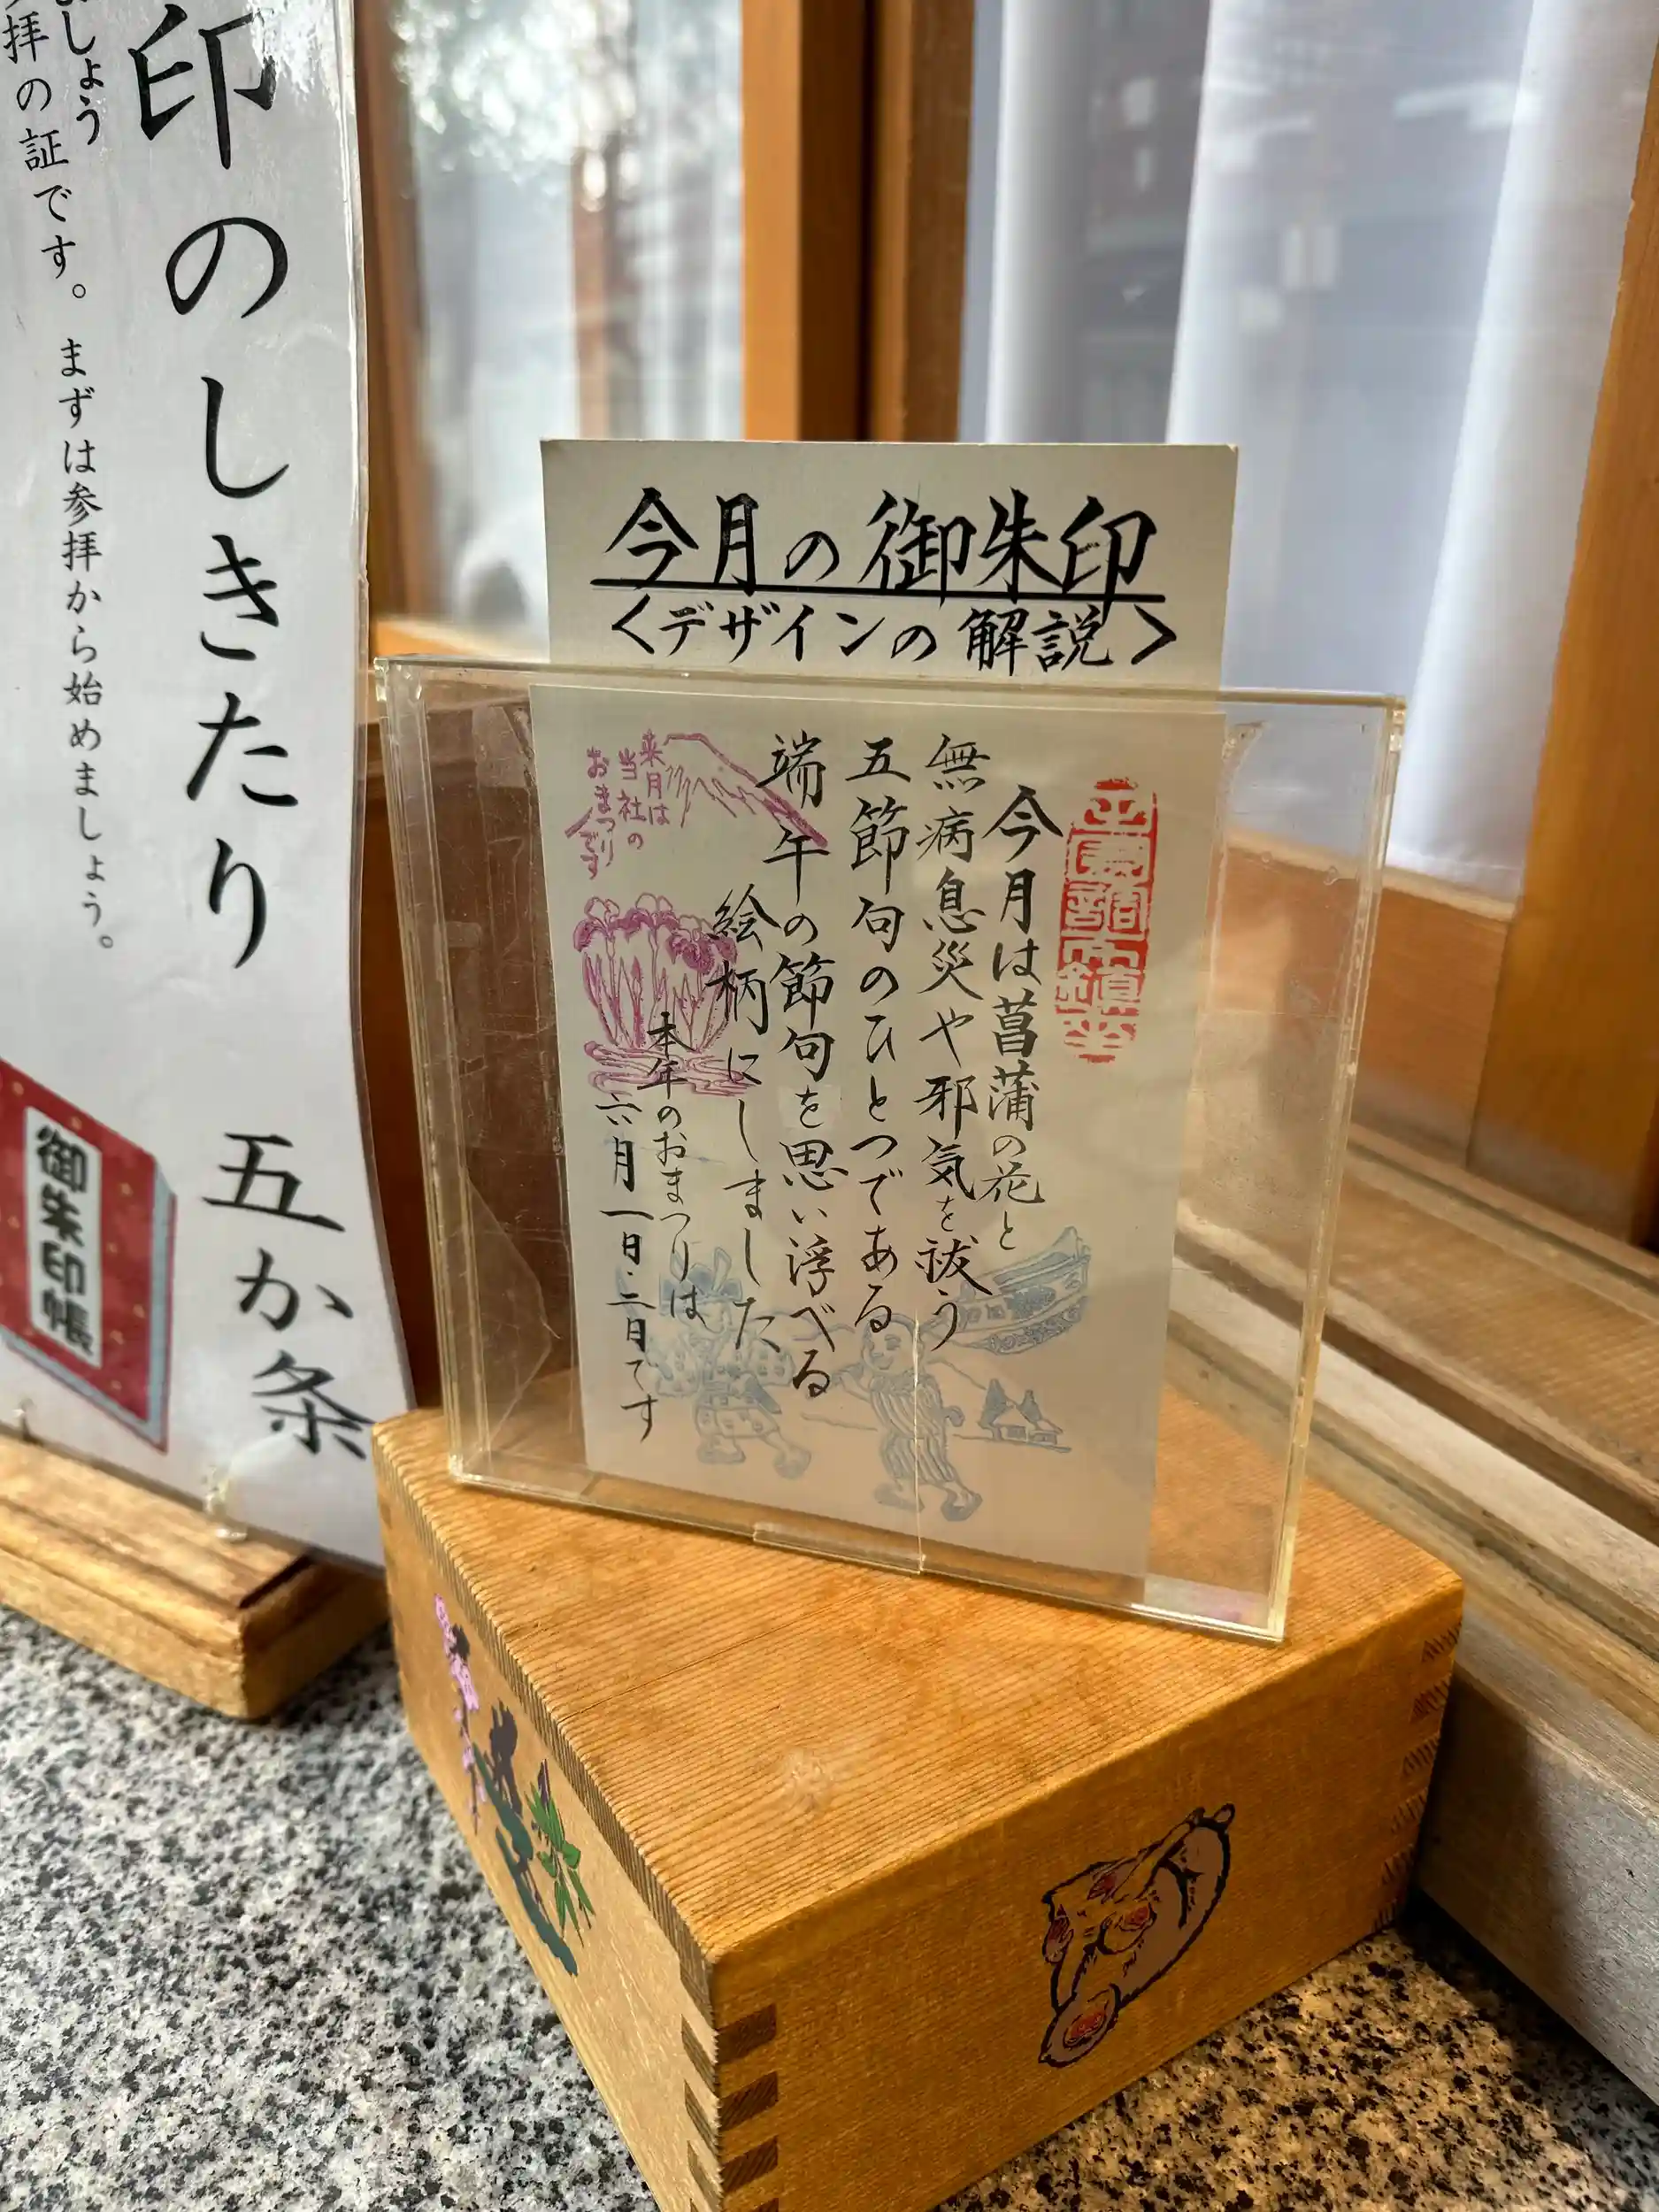 今月の御朱印
<デザインの解説>
今月は菖蒲の花と
無病息災や邪気を祓う
五節句のひとつである
端午の節句を思い浮べる
絵柄にしました
本年のおまつりは
六月一日・二日です
来月は
当社の
おまつり
です
印のしきたり 五か条
しょう
拝の証です。まずは参拝から始めましょう。
御朱印帳